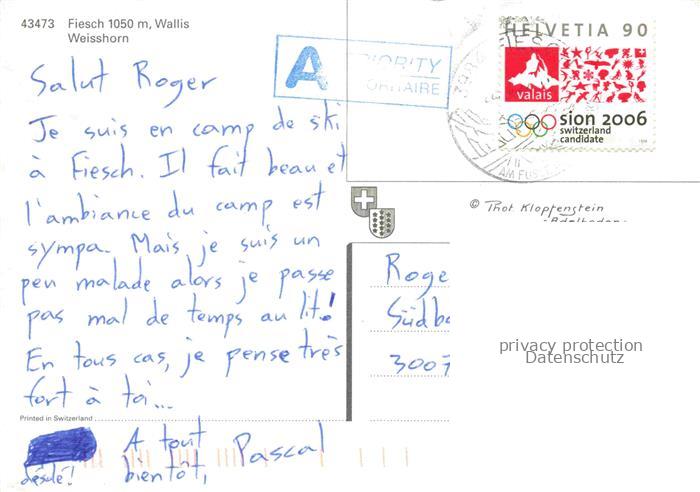 43473 Fiesch 1050 m, Wallis
Weisshorn
Salut Roger
Je suis en camp de ski
à Fiesch. Il fait beau et
l'ambiance du camp est
sympa. Mais je suis un
peu malade alors je passe
pas mal de temps au lit!
En tous cas, je pense très
fort à toi...
Printed in Switzerland
désolé!
A tout
bientôt,
Pascal
A PRIORITY
HELVETIA 90
valais
sion 2006
switzerland
candidate
© Phot. Klopfenstein
Adelboden
Roge
Südb
3007
privacy protection
Datenschutz